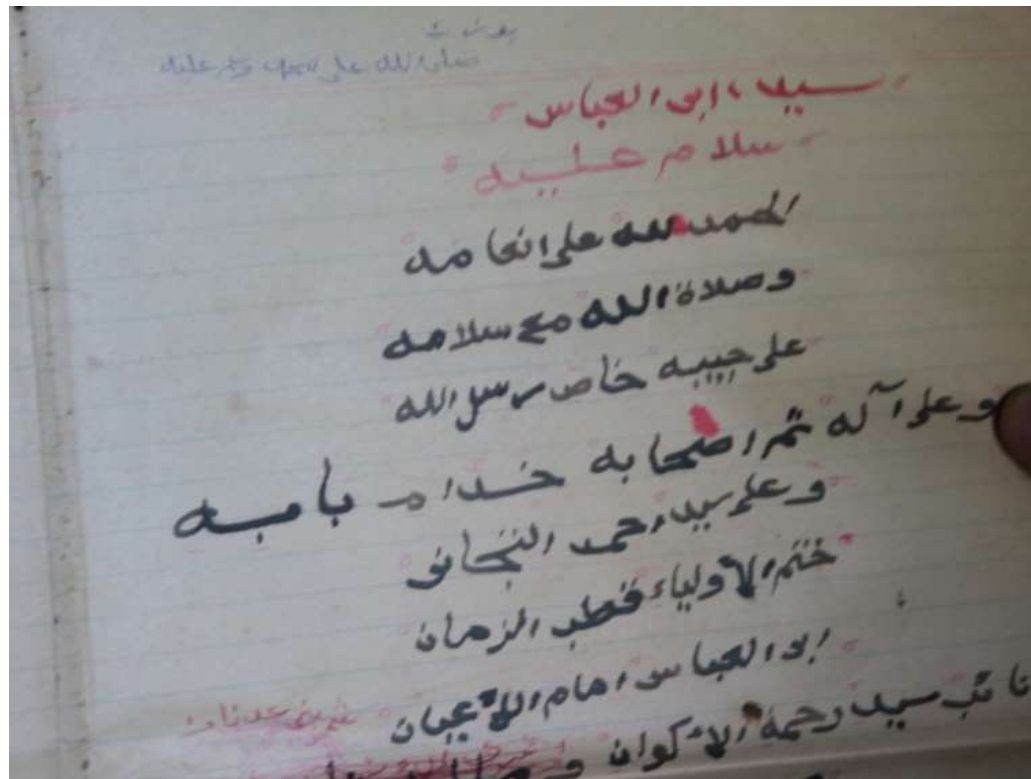 سيد ابى العباس
سلام عليه
الحمد لله على انعامه
وصلاة الله مع سلامه
على حبيبه خاص رسل الله
وعلى آله ثم اصحابه خدام بابه
وعلى سيد احمد التجانى
ختم الأولياء قطب الزمان
ابى العباس امام الأعيان
نائب سيد رحمة الأكوان